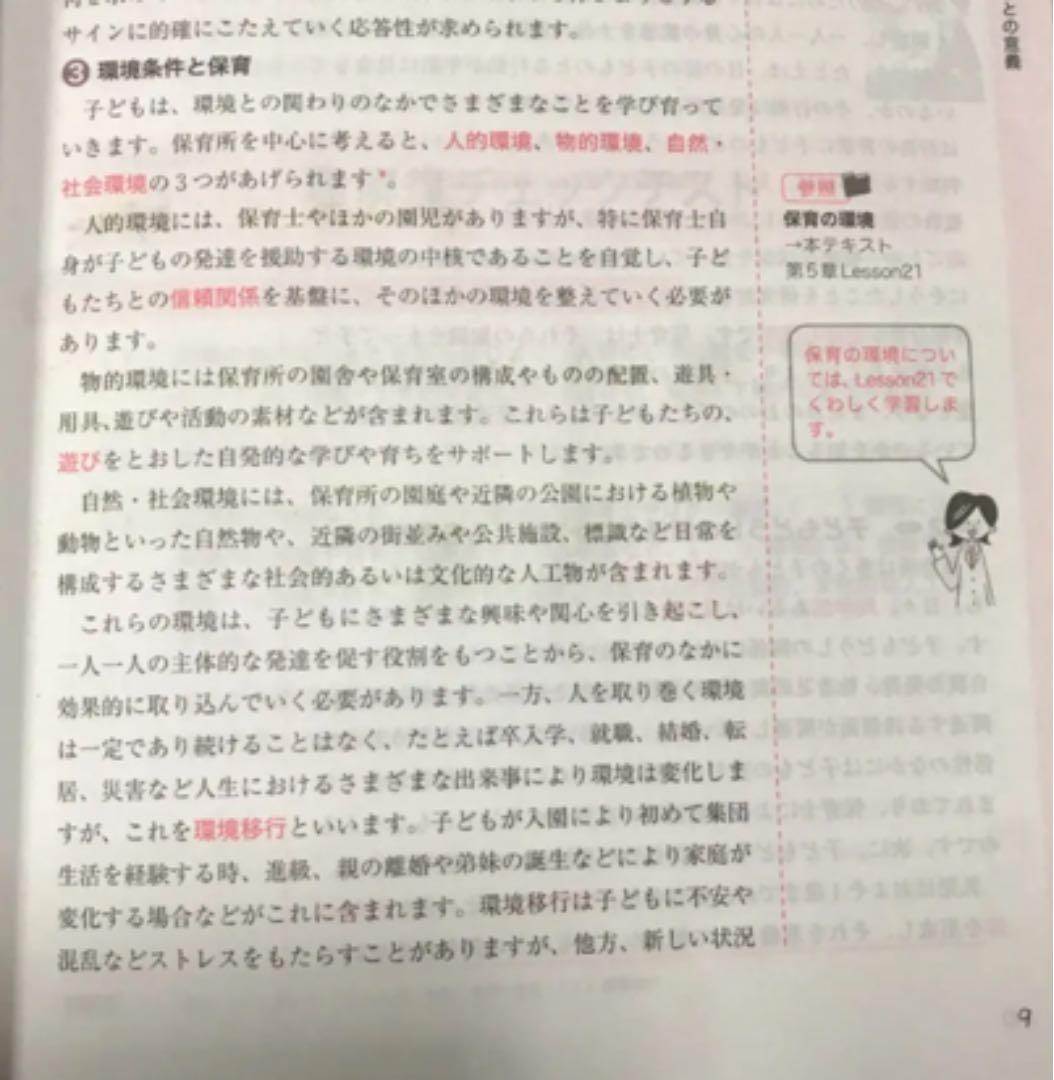 サインに的確にこたえていく応答性が求められます。
3 環境条件と保育
子どもは、環境との関わりのなかでさまざまなことを学び育って
いきます。保育所を中心に考えると、人的環境、物的環境、自然・
社会環境の3つがあげられます*。
人的環境には、保育士やほかの園児がありますが、特に保育士自
身が子どもの発達を援助する環境の中核であることを自覚し、子ど
もたちとの信頼関係を基盤に、そのほかの環境を整えていく必要が
あります。
物的環境には保育所の園舎や保育室の構成やものの配置、遊具・
用具、遊びや活動の素材などが含まれます。これらは子どもたちの、
遊びをとおした自発的な学びや育ちをサポートします。
自然・社会環境には、保育所の園庭や近隣の公園における植物や
動物といった自然物や、近隣の街並みや公共施設、標識など日常を
構成するさまざまな社会的あるいは文化的な人工物が含まれます。
これらの環境は、子どもにさまざまな興味や関心を引き起こし、
一人一人の主体的な発達を促す役割をもつことから、保育のなかに
効果的に取り込んでいく必要があります。一方、人を取り巻く環境
は一定であり続けることはなく、たとえば卒入学、就職、結婚、転
居、災害など人生におけるさまざまな出来事により環境は変化しま
すが、これを環境移行といいます。子どもが入園により初めて集団
生活を経験する時、進級、親の離婚や弟妹の誕生などにより家庭が
変化する場合などがこれに含まれます。環境移行は子どもに不安や
混乱などストレスをもたらすことがありますが、他方、新しい状況
参照
保育の環境
→本テキスト
第5章Lesson21
保育の環境につい
ては、Lesson21で
くわしく学習しま
す。
との意義
9